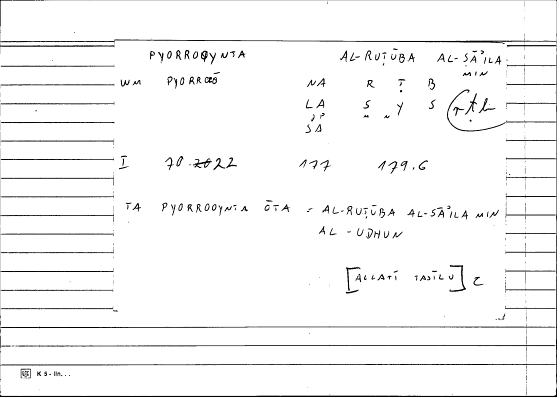 PYORROOYNTA AL-RUṬŪBA AL-SĀʾILA
MIN
WM PYORROŌ NA R Ṭ B
LA S Y S rṭb
M N
SA
I 70.2022 177 179.6
TA PYORROOYNTA ŌTA = AL-RUṬŪBA AL-SĀʾILA MIN
AL-UDHUN
[ALLATĪ TASĪLU]
K 5 - lin...